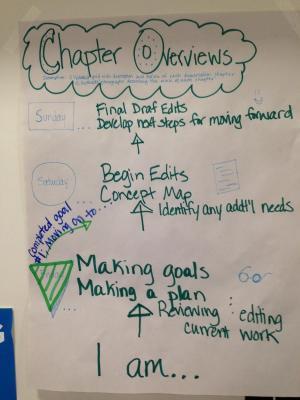 Chapter Overviews
Sunday ...
Final Draf Edits
Develop next steps for moving forward
Saturday ...
Begin Edits
Concept Map
Identify any addt'l needs
Completed goal
#1... Moving on to...
Making goals
Making a plan
...
Reviewing : editing
current work
I am...